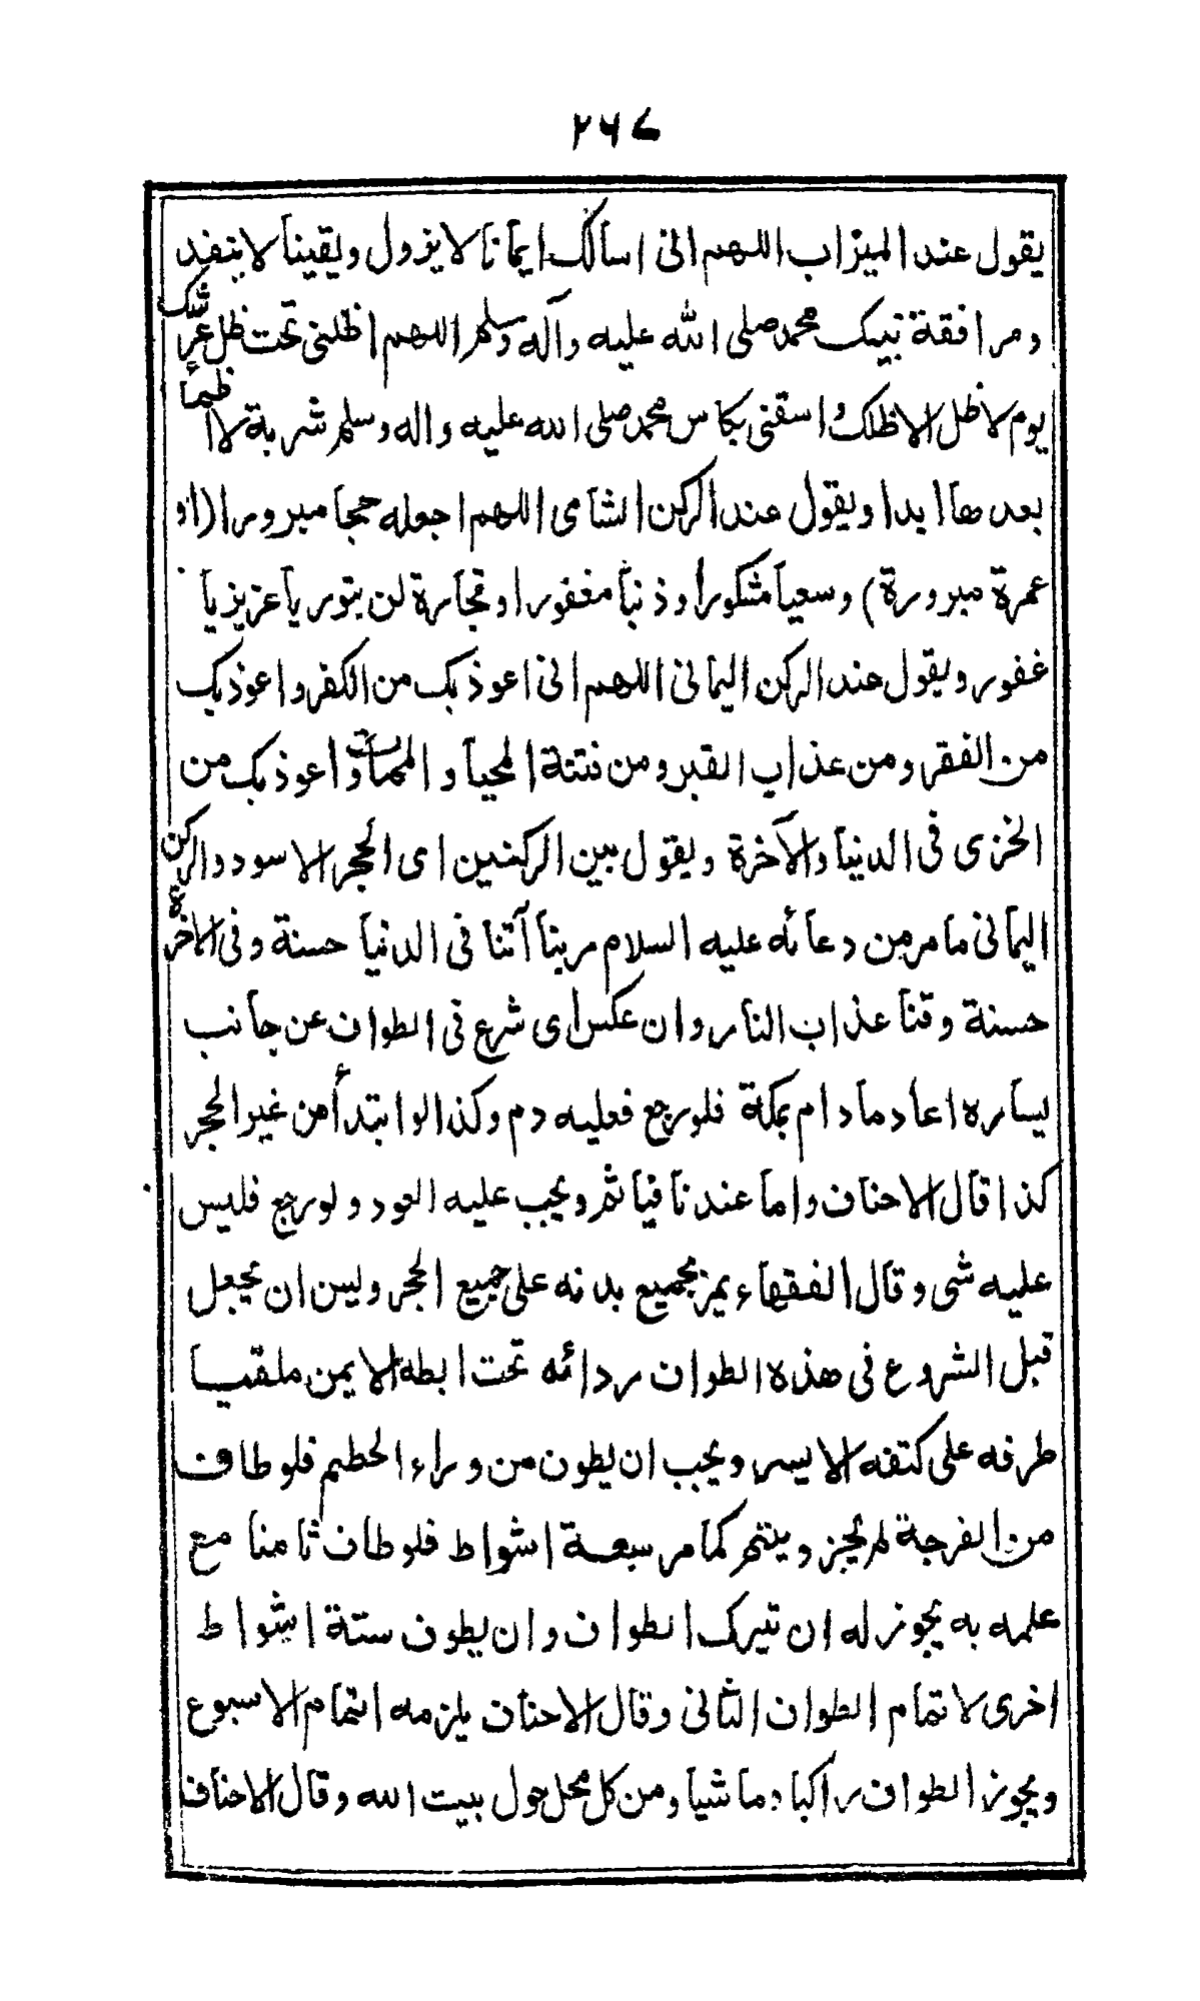 ٢٦٧
يقول عند الميزاب اللهم انى اسألك ايمانا لا يزول ويقينا لا ينفد
ومرافقة نبيك محمد صلى الله عليه وآله وسلم اللهم اظلنى تحت ظل عرشك
يوم لا ظل الا ظلك واسقنى بكاس محمد صلى الله عليه واله وسلم شربة لا اظمأ
بعدها ابدا ويقول عند الركن الشامى اللهم اجعله حجا مبرورا (او
عمرة مبرورة) وسعيا مشكورا وذنبا مغفورا وتجارة لن تبور يا عزيز يا
غفور ويقول عند الركن اليمانى اللهم انى اعوذ بك من الكفر واعوذ بك
من الفقر ومن عذاب القبر ومن فتنة المحيا والممات واعوذ بك من
الخزى فى الدنيا والآخرة ويقول بين الركنين اى الحجر الاسود والركن
اليمانى ما مر من دعائه عليه السلام ربنا آتنا فى الدنيا حسنة وفى الاخرة
حسنة وقنا عذاب النار وان عكس اى شرع فى الطواف عن جانب
يساره اعاد ما دام بمكة فلو رجع فعليه دم وكذا لو ابتدأ من غير الحجر
كذا قال الاحناف واما عندنا فياثم ويجب عليه العود ولو رجع فليس
عليه شى وقال الفقهاء يمر بجميع بدنه على جميع الحجر وليس ان يجعل
قبل الشروع فى هذه الطواف ردائه تحت ابطه الايمن ملقيا
طرفه على كتفه الايسر ويجب ان يطوف من وراء الحطيم فلو طاف
من الفرجة لم يجز ويتم كما مر سبعة اشواط فلو طاف ثامنا مع
علمه به يجوز له ان يترك الطواف وان يطوف ستة اشواط
اخرى لاتمام الطواف الثانى وقال الاحناف يلزمه اتمام الاسبوع
ويجوز الطواف راكبا وماشيا ومن كل محل حول بيت الله وقال الاحناف